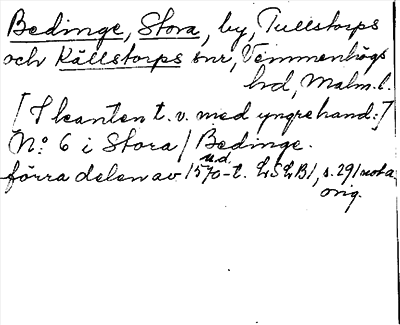 Bedinge, Stora, by, Tullstorps
och Källstorps snr, Vemmenhögs
hd, Malm. l.
[I kanten t. v. med yngre hand:]
No: 6 i Stora / Bedinge.
u.d.
förra delen av 1570-t. LSLB1, s. 291 nota
orig.